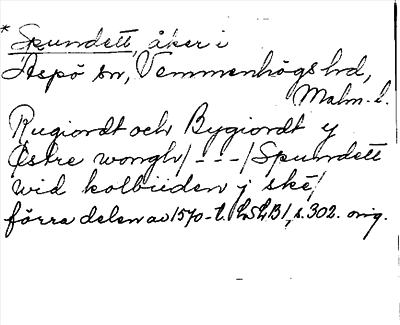 * Spundett, åker i
Äspö sn, Vemmenhögs hd,
Malm. l.
Rugiordt och Bygiordt y
Östre wongh/---/Spundett
wid kolbiiden j ske/
förra delen av 1570-t. LSLB1, s. 302. orig.